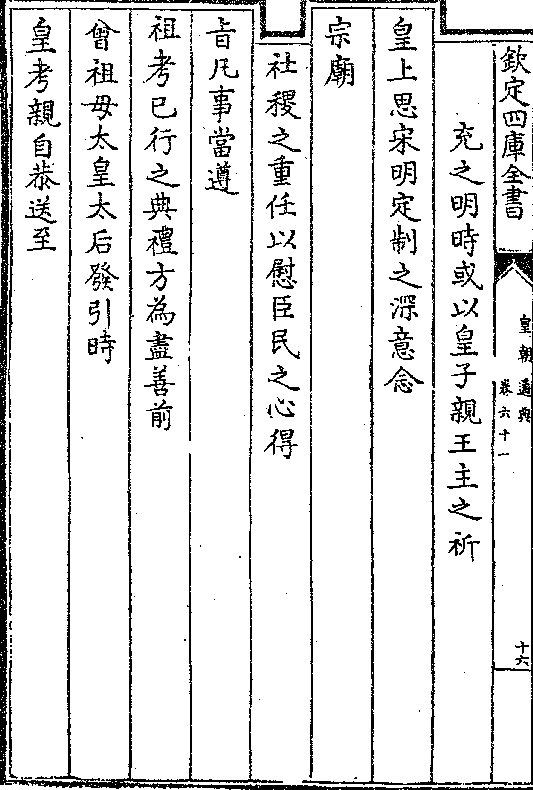 欽定四庫全書
皇朝通典
卷六十一
十六
充之明時或以皇子親王主之祈
皇上思宋明定制之深意念
宗廟
社稷之重任以慰臣民之心得
旨凡事當遵
祖考已行之典禮方為盡善前
曾祖母太皇太后發引時
皇考親自恭送至